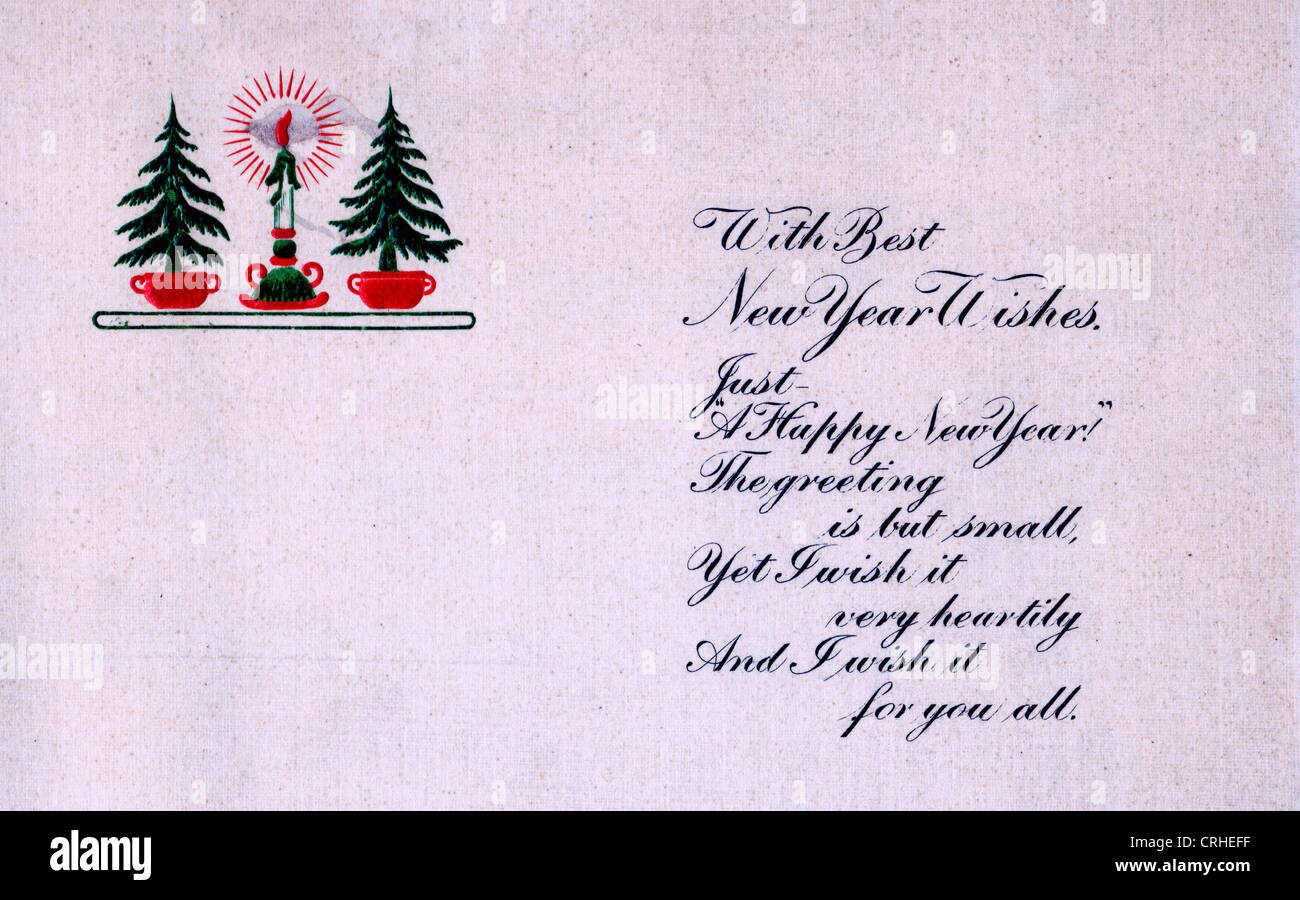 With Best
New Year Wishes.
Just-
"A Happy New Year!"
The greeting
is but small,
Yet I wish it
very heartily
And I wish it
for you all.
alamy
alamy stock photo
CRHEFF
www.alamy.com